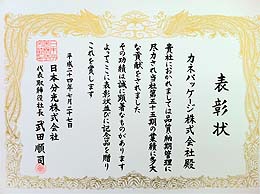 表彰状
カネパッケージ株式会社殿
貴社におかれましては品質納期管理に
尽力され当社第五十五期の業績に多大
な貢献をされました
その功績は誠に顕著なものがあります
よってここに表彰状並びに記念品を贈り
これを賞します
平成二十四年七月二十七日
日本分光株式会社
代表取締役社長 武田順司